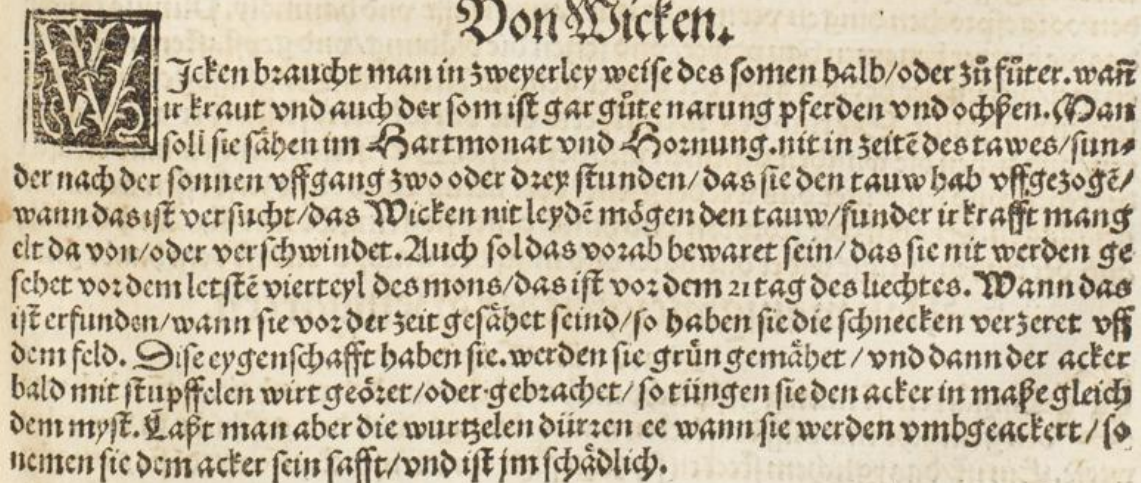 Von Wicken.
WJcken braucht man in zweyerley weise des somen halb/oder zů fůter. wañ
ir kraut vnd auch der som ist gar gůte narung pferden vnd ochßen. Man
soll sie såhen im Hartmonat vnd Hornung. nit in zeitē des tawes/sun⸗
der nach der sonnen vffgang zwo oder drey stunden/das sie den tauw hab vffgezogē/
wann das ist versucht/das Wicken nit leydē mögen den tauw/sunder ir krafft mang
elt da von/oder verschwindet. Auch sol das vorab bewaret sein/das sie nit werden ge
sehet vor dem letstē vierteyl des mons/das ist vor dem 21 tag des liechtes. Wann das
ist erfunden/wann sie vor der zeit gesåhet seind/so haben sie die schnecken verzeret vff
dem feld. Dise eygenschafft haben sie. werden sie grün gemåhet/vnd dann der acker
bald mit stupffelen wirt geöret/oder gebrachet/so tüngen sie den acker in maße gleich
dem myst. Laßt man aber die wurtzelen dürren ee wann sie werden vmbgeackert/so
nemen sie dem acker sein safft/vnd ist jm schådlich.